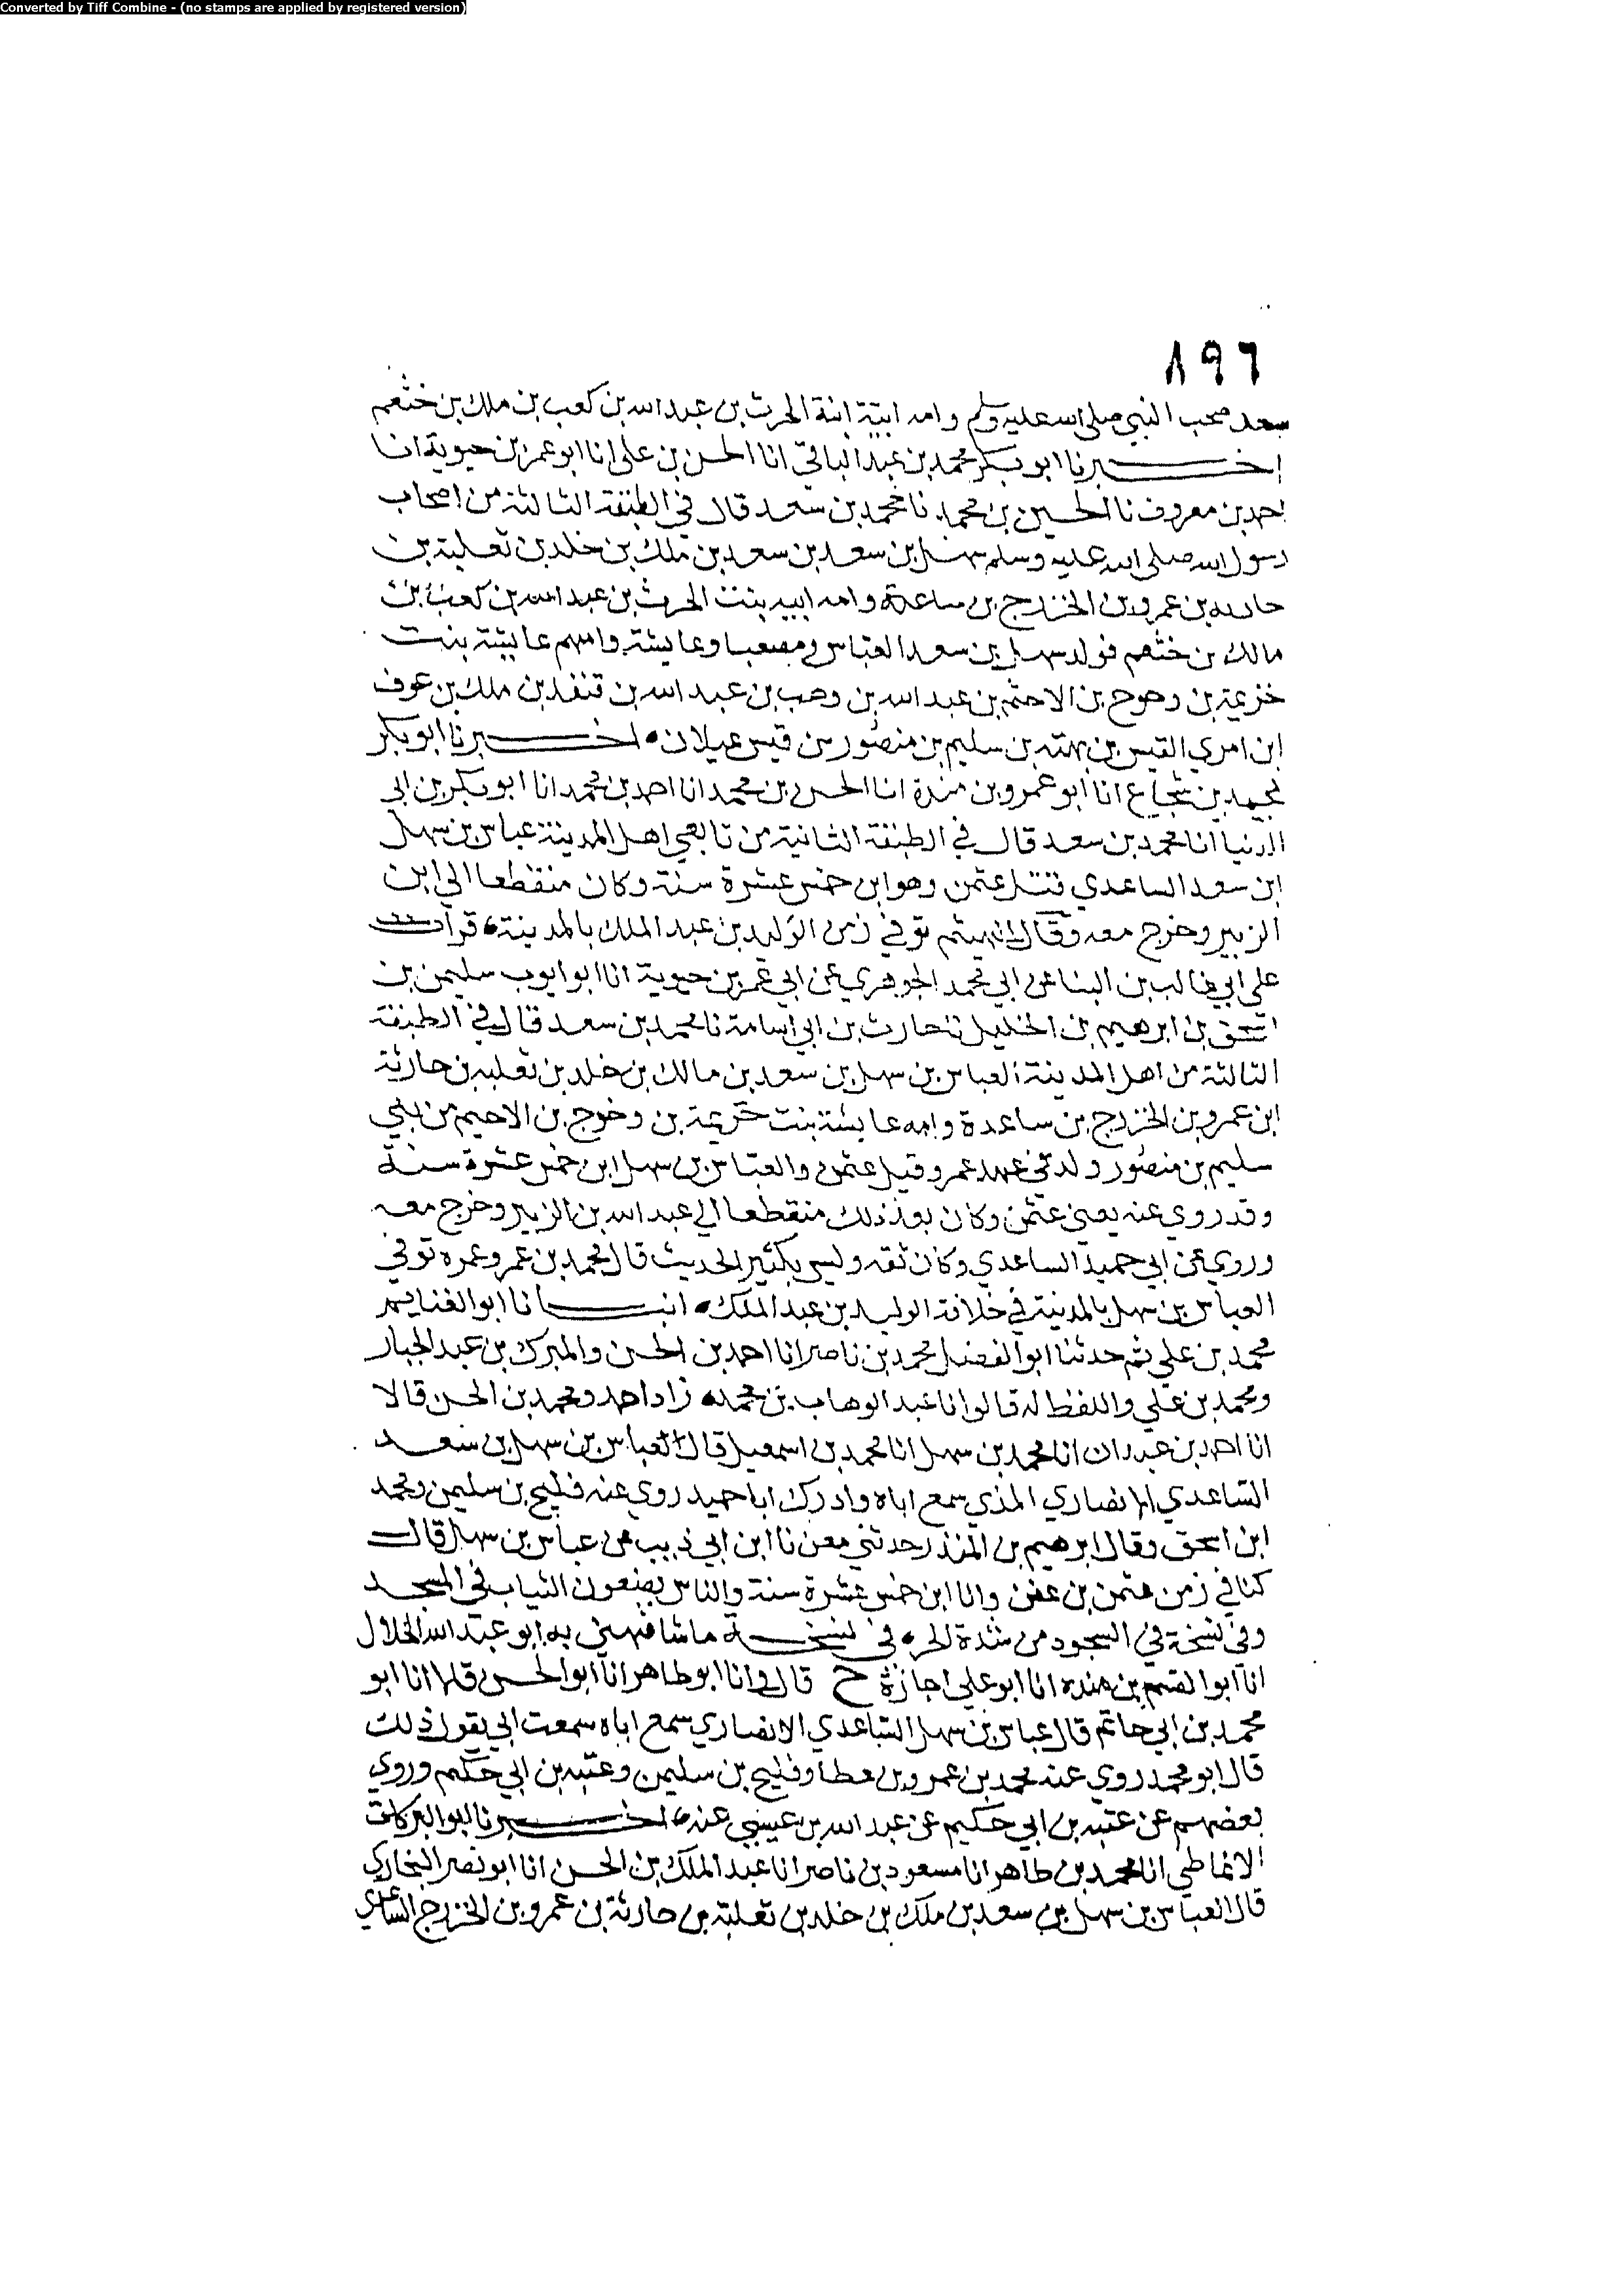 Converted by Tiff Combine - (no stamps are applied by registered version)
٨٩٦
سعد صحب النبي صلى الله عليه وسلم وامه ابية ابنة الحرث بن عبد الله بن كعب بن ملك بن خثعم
اخبرنا ابو بكر محمد بن عبد الباقي انا الحسن بن على انا ابو عمر بن حيوية انا
احمد بن معروف نا الحسين بن محمد نا محمد بن سعد قال في الطبقة الثالثة من اصحاب
رسول الله صلى الله عليه وسلم سهل بن سعد بن سعد بن ملك بن خلد بن ثعلبة بن
حارثه بن عمرو بن الخزرج بن ساعدة وامه ابيه بنت الحرث بن عبد الله بن كعب بن
مالك بن خثعم فولد سهل بن سعد العباس ومصعبا وعايشة وامهم عايشة بنت
خزيمة بن وحوح بن الاحثم بن عبد الله بن وهب بن عبد الله بن قنفد بن ملك بن عوف
ابن امري القيس بن بهته بن سليم بن منصور من قيس عيلان اخبرنا ابو بكر
محمد بن شجاع انا ابو عمرو بن مندة انا الحسن بن محمد انا احمد بن محمد انا ابو بكر بن ابي
الدنيا انا محمد بن سعد قال في الطبقة الثانية من تابعي اهل المدينة عباس بن سهل
ابن سعد الساعدي قتل عثمن وهو ابن خمس عشرة سنة وكان منقطعا الى ابن
الزبير وخرج معه وقال الهيثم توفي زمن الوليد بن عبد الملك بالمدينة قرات
على ابي غالب بن البنا عن ابي محمد الجوهري عن ابي عمر بن حيوية انا ابو ايوب سليمن بن
اسحق بن ابرهيم بن الخليل نا حارث بن ابي اسامة نا محمد بن سعد قال في الطبقة
الثالثة من اهل المدينة العباس بن سهل بن سعد بن مالك بن خلد بن ثعلبه بن حارثة
ابن عمرو بن الخزرج بن ساعدة وامه عايشة بنت خزيمة بن وحوح بن الاحثم من بني
سليم بن منصور ولد في عهد عمر وقتل عثمن والعباس بن سهل ابن خمس عشرة سنة
وقد روي عنه يعني عثمن وكان بعد ذلك منقطعا الي عبد الله بن الزبير وخرج معه
وروي عن ابي حميد الساعدي وكان ثقه وليس بكثير الحديث قال محمد بن عمر وغيره توفي
العباس بن سهل بالمدينة في خلافة الوليد بن عبد الملك انبانا ابو الغنايم
محمد بن علي ثم حدثنا ابو الفضل محمد بن ناصر انا احمد بن الحسن والمبرك بن عبد الجبار
ومحمد بن علي واللفظ له قالوا انا عبد الوهاب بن محمد زاد احمد ومحمد بن الحسن قالا
انا احمد بن عبدان انا محمد بن سهل انا محمد بن اسمعيل قال العباس بن سهل بن سعد
الساعدي الانصاري المدني سمع اباه وادرك ابا حميد روي عنه فليح بن سليمن ومحمد
ابن اسحق وقال ابرهيم بن المنذر حدثني معن نا ابن ابي ذيب عن عباس بن سهل قال
كنا في زمن عثمن بن عفن وانا ابن خمس عشرة سنة والناس يضعون الثياب في المسجد
وفي نسخة في السجود من شدة الحر في نسخة ما شافهني به ابو عبد الله الخلال
انا ابو القسم بن منده انا ابو علي اجازة ح قال وانا ابو طاهر انا ابو الحسن قالا انا ابو
محمد بن ابي حاتم قال عباس بن سهل الساعدي الانصاري سمع اباه سمعت ابي يقول ذلك
قال ابو محمد روي عنه محمد بن عمرو بن عطا وفليح بن سليمن وعتبه بن ابي حكيم وروي
بعضهم عن عتبه بن ابي حكيم عن عبد الله بن عيسى عنه اخبرنا ابو البركات
الانماطي انا محمد بن طاهر انا مسعود بن ناصر انا عبد الملك بن الحسن انا ابو نصر البخاري
قال العباس بن سهل بن سعد بن ملك بن خلد بن ثعلبة بن حارثة بن عمرو بن الخزرج الساعدي